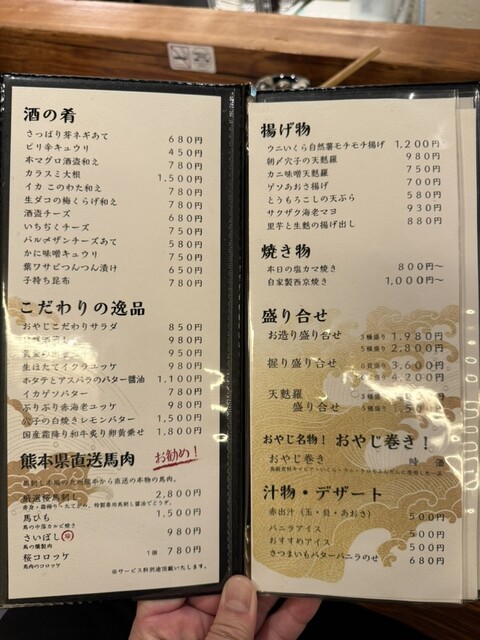 酒の肴
さっぱり芽ネギあて 680円
ピリ辛キュウリ 450円
本マグロ酒盗和え 780円
カラスミ大根 1,500円
イカ このわた和え 780円
生ダコの梅くらげ和え 780円
酒盗チーズ 680円
いちぢくチーズ 750円
パルメザンチーズあて 580円
かに味噌キュウリ 750円
葉ワサビつんつん漬け 650円
子持ち昆布 780円
こだわりの逸品
おやじこだわりサラダ 850円
980円
950円
生ほたてイクラユッケ 980円
ホタテとアスパラのバター醤油 1,100円
イカゲソバター 780円
ぷりぷり赤海老ユッケ 980円
穴子の白焼きレモンバター 1,500円
国産霜降り和牛炙り卵黄乗せ 1,800円
熊本県直送馬肉 お勧め！
厳選桜馬刺し 2,800円
馬ひも 1,500円
馬の中落カルビ焼き
さいぼし 980円
馬の燻製肉
桜コロッケ 1個 780円
馬肉のコロッケ
※サービス料別途頂戴いたします。
揚げ物
ウニいくら自然薯モチモチ揚げ 1,200円
朝〆穴子の天麩羅 980円
カニ味噌天麩羅 750円
ゲソあおさ揚げ 700円
とうもろこしの天ぷら 580円
サクザク海老マヨ 930円
里芋と生麩の揚げ出し 880円
焼き物
本日の塩カマ焼き 800円〜
自家製西京焼き 1,000円〜
盛り合せ
お造り盛り合せ 3種盛り 1,980円
5種盛り 2,800円
握り盛り合せ 3,600円
4,200円
天麩羅
盛り合せ
おやじ名物！ おやじ巻き！
おやじ巻き 時 価
汁物・デザート
赤出汁（玉・貝・あおさ） 500円
バニラアイス 500円
おすすめアイス 500円
さつまいもバターバニラのせ 680円